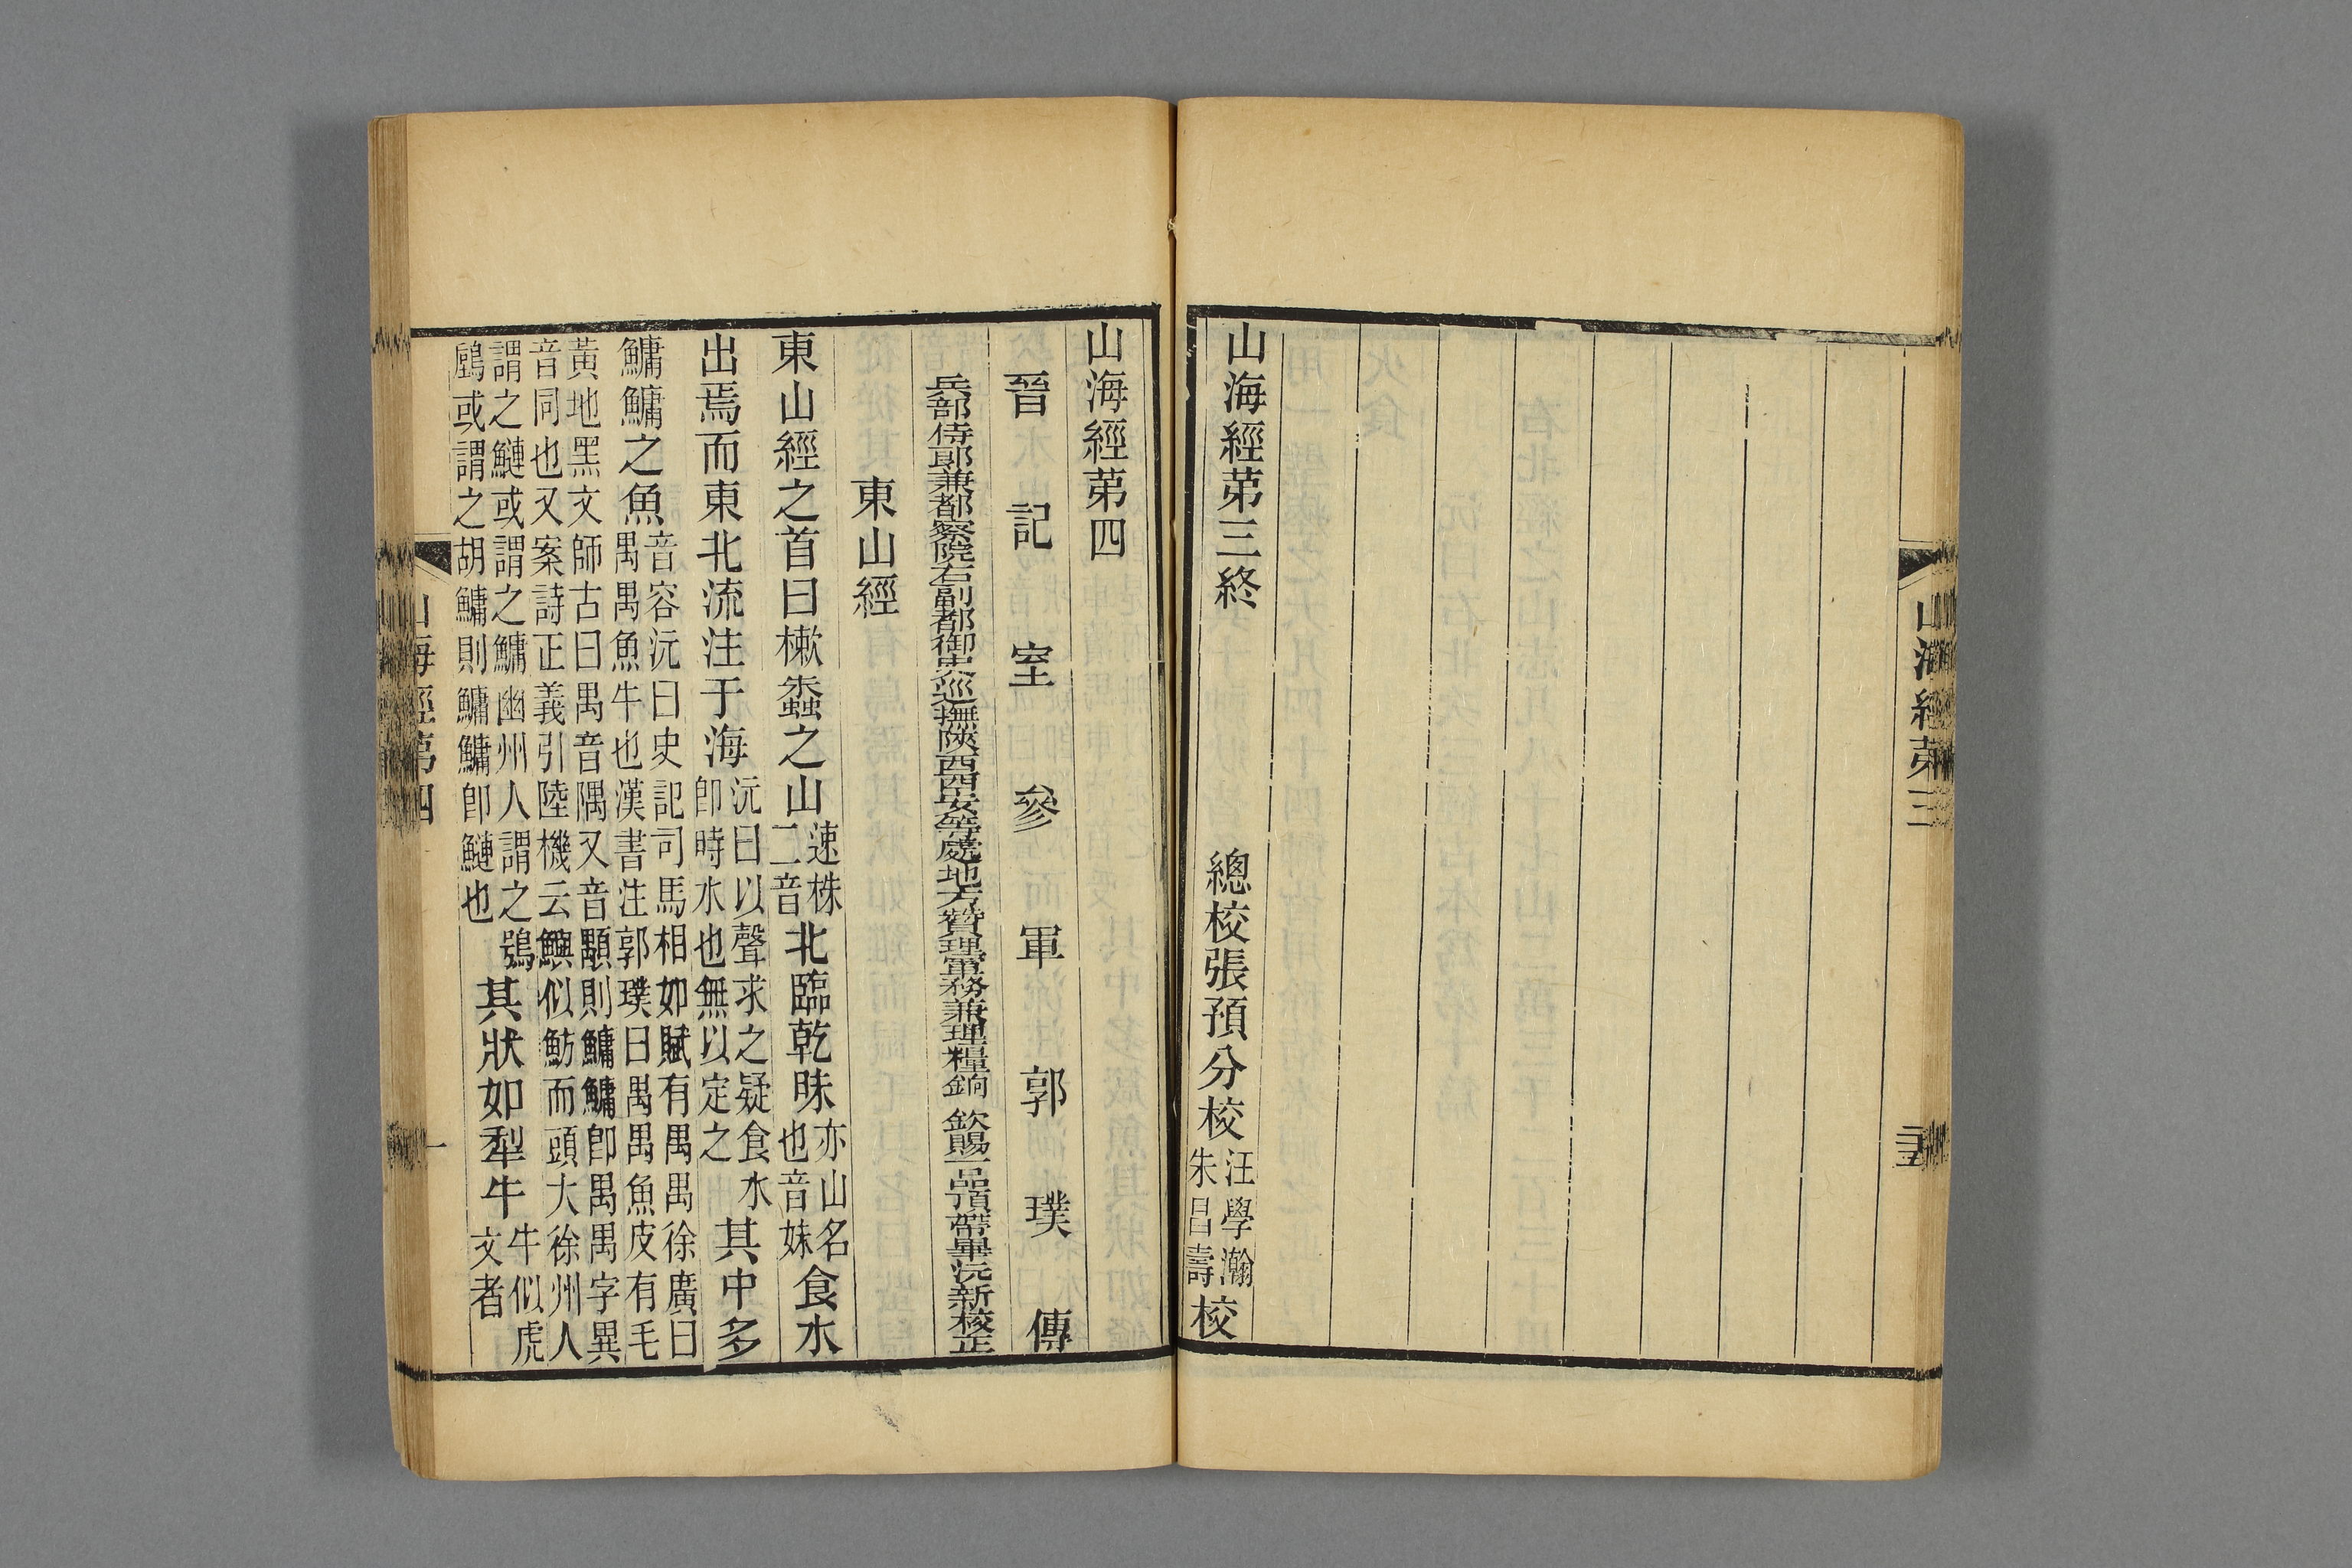 山海經第三
三五
山海經第三終
總校張預分校汪學瀚朱昌壽校
山海經第四
晉記室參軍郭璞傳
兵部侍郎兼都察院右副都御史巡撫陝西西安等處地方贊理軍務兼理糧餉 欽賜一品頂帶畢沅新校正
東山經
東山經之首曰樕𧑤之山速株二音北臨乾昧亦山名也音妹食水
出焉而東北流注于海沅曰以聲求之疑食水卽時水也無以定之其中多
鱅鱅之魚音容沅曰史記司馬相如賦有禺禺徐廣曰禺禺魚牛也漢書注郭璞曰禺禺魚皮有毛
黃地黑文師古曰禺音隅又音顒則鱅鱅卽禺禺字異音同也又案詩正義引陸機云鱮似魴而頭大徐州人
謂之鰱或謂之鱅幽州人謂之鴞鷉或謂之胡鱅則鱅鱅卽鰱也其狀如犁牛牛似虎文者
山海經第四
一